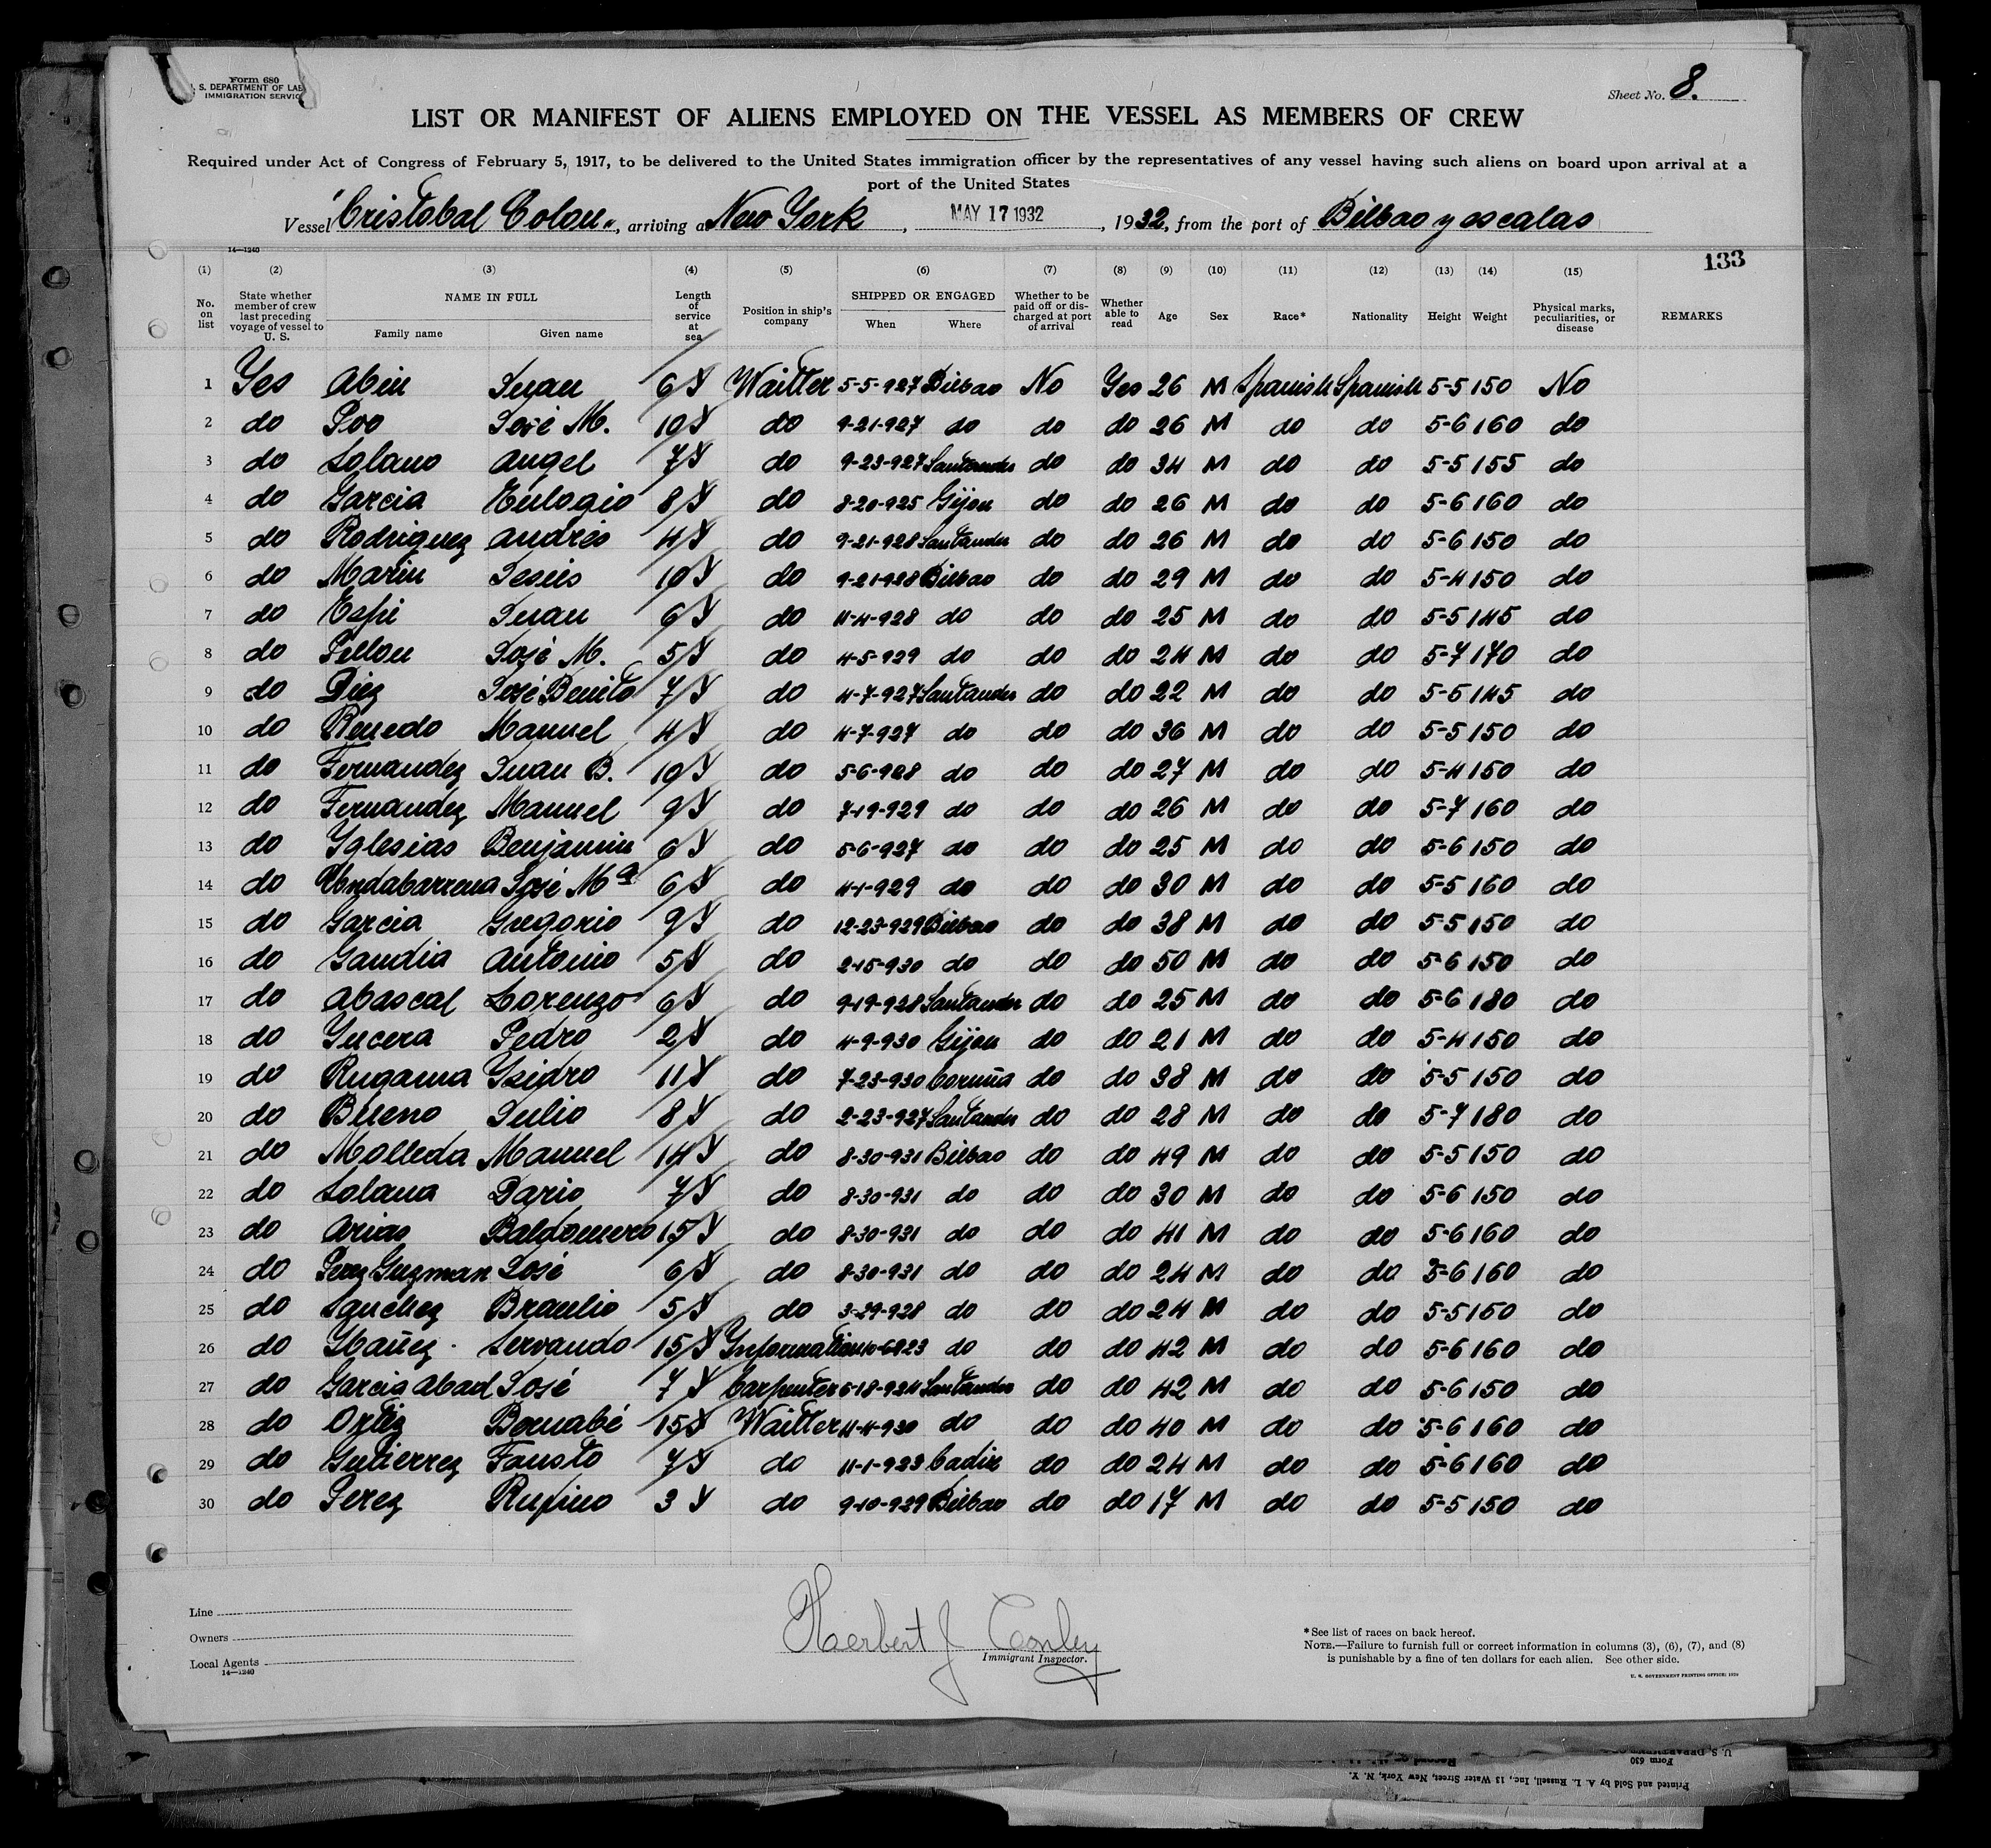 Form 680
U. S. DEPARTMENT OF LAB
IMMIGRATION SERVIC
Sheet No. 8.
LIST OR MANIFEST OF ALIENS EMPLOYED ON THE VESSEL AS MEMBERS OF CREW
Required under Act of Congress of February 5, 1917, to be delivered to the United States immigration officer by the representatives of any vessel having such aliens on board upon arrival at a
port of the United States
Vessel "Cristobal Colon", arriving at New York, MAY 17 1932, 1932, from the port of Bilbao y escalas
14—1240
133
(1) (2) (3) (4) (5) (6) (7) (8) (9) (10) (11) (12) (13) (14) (15)
No. on list State whether member of crew last preceding voyage of vessel to U. S. NAME IN FULL Family name Given name Length of service at sea Position in ship's company SHIPPED OR ENGAGED When Where Whether to be paid off or discharged at port of arrival Whether able to read Age Sex Race* Nationality Height Weight Physical marks, peculiarities, or disease REMARKS
1 Yes Abin Juan 6 Y Waitter 5-5-927 Bilbao No Yes 26 M Spanish Spanish 5-5 150 No
2 do Poo José M. 10 Y do 9-21-927 do do do 26 M do do 5-6 160 do
3 do Solano Angel 7 Y do 9-23-927 Santander do do 34 M do do 5-5 155 do
4 do Garcia Eulogio 8 Y do 8-20-925 Gijon do do 26 M do do 5-6 160 do
5 do Rodriguez Andrés 4 Y do 9-21-928 Santander do do 26 M do do 5-6 150 do
6 do Marin Jesús 10 Y do 9-21-928 Bilbao do do 29 M do do 5-4 150 do
7 do Espi Juan 6 Y do 11-4-928 do do do 25 M do do 5-5 145 do
8 do Pellon José M. 5 Y do 4-5-929 do do do 24 M do do 5-7 170 do
9 do Diez José Benito 7 Y do 4-7-927 Santander do do 22 M do do 5-6 145 do
10 do Renedo Manuel 4 Y do 4-7-927 do do do 36 M do do 5-5 150 do
11 do Fernandez Juan B. 10 Y do 5-6-928 do do do 27 M do do 5-4 150 do
12 do Fernandez Manuel 9 Y do 7-19-929 do do do 26 M do do 5-7 160 do
13 do Yglesias Benjamin 6 Y do 5-6-927 do do do 25 M do do 5-6 150 do
14 do José Mª 6 Y do 4-1-929 do do do 30 M do do 5-5 160 do
15 do Garcia Gregorio 9 Y do 12-23-929 Bilbao do do 38 M do do 5-5 150 do
16 do Gandia Antonio 5 Y do 2-15-930 do do do 50 M do do 5-6 150 do
17 do Abascal Lorenzo 6 Y do 9-19-928 Santander do do 25 M do do 5-6 180 do
18 do Yucera Pedro 2 Y do 4-9-930 Gijon do do 21 M do do 5-4 150 do
19 do Rugama Ysidro 11 Y do 7-23-930 Coruña do do 38 M do do 5-5 150 do
20 do Bueno Julio 8 Y do 2-23-927 Santander do do 28 M do do 5-7 180 do
21 do Molleda Manuel 14 Y do 8-30-931 Bilbao do do 49 M do do 5-5 150 do
22 do Solana Dario 7 Y do 8-30-931 do do do 30 M do do 5-6 150 do
23 do Arias Baldomero 15 Y do 8-30-931 do do do 41 M do do 5-6 160 do
24 do Perez Guzman José 6 Y do 8-30-931 do do do 24 M do do 5-6 160 do
25 do Sanchez Braulio 5 Y do 3-29-928 do do do 24 M do do 5-5 160 do
26 do Ybañez Servando 15 Y Information do do do 42 M do do 5-6 160 do
27 do Garcia Abad José 7 Y Carpenter 6-18-924 Santander do do 42 M do do 5-6 150 do
28 do Ortiz Bernabé 15 Y Waitter 11-4-930 do do do 40 M do do 5-6 160 do
29 do Gutierrez Fausto 7 Y do 11-1-923 Cadiz do do 24 M do do 5-6 160 do
30 do Perez Rufino 3 Y do 9-10-929 Bilbao do do 17 M do do 5-5 150 do
Line
Owners
Local Agents
14—1240
Herbert J Conley
Immigrant Inspector.
*See list of races on back hereof.
NOTE.—Failure to furnish full or correct information in columns (3), (6), (7), and (8)
is punishable by a fine of ten dollars for each alien. See other side.
U. S. GOVERNMENT PRINTING OFFICE:
Form 630
Printed and Sold by A. L. Russell, Inc., 13 Water Street, New York, N. Y.